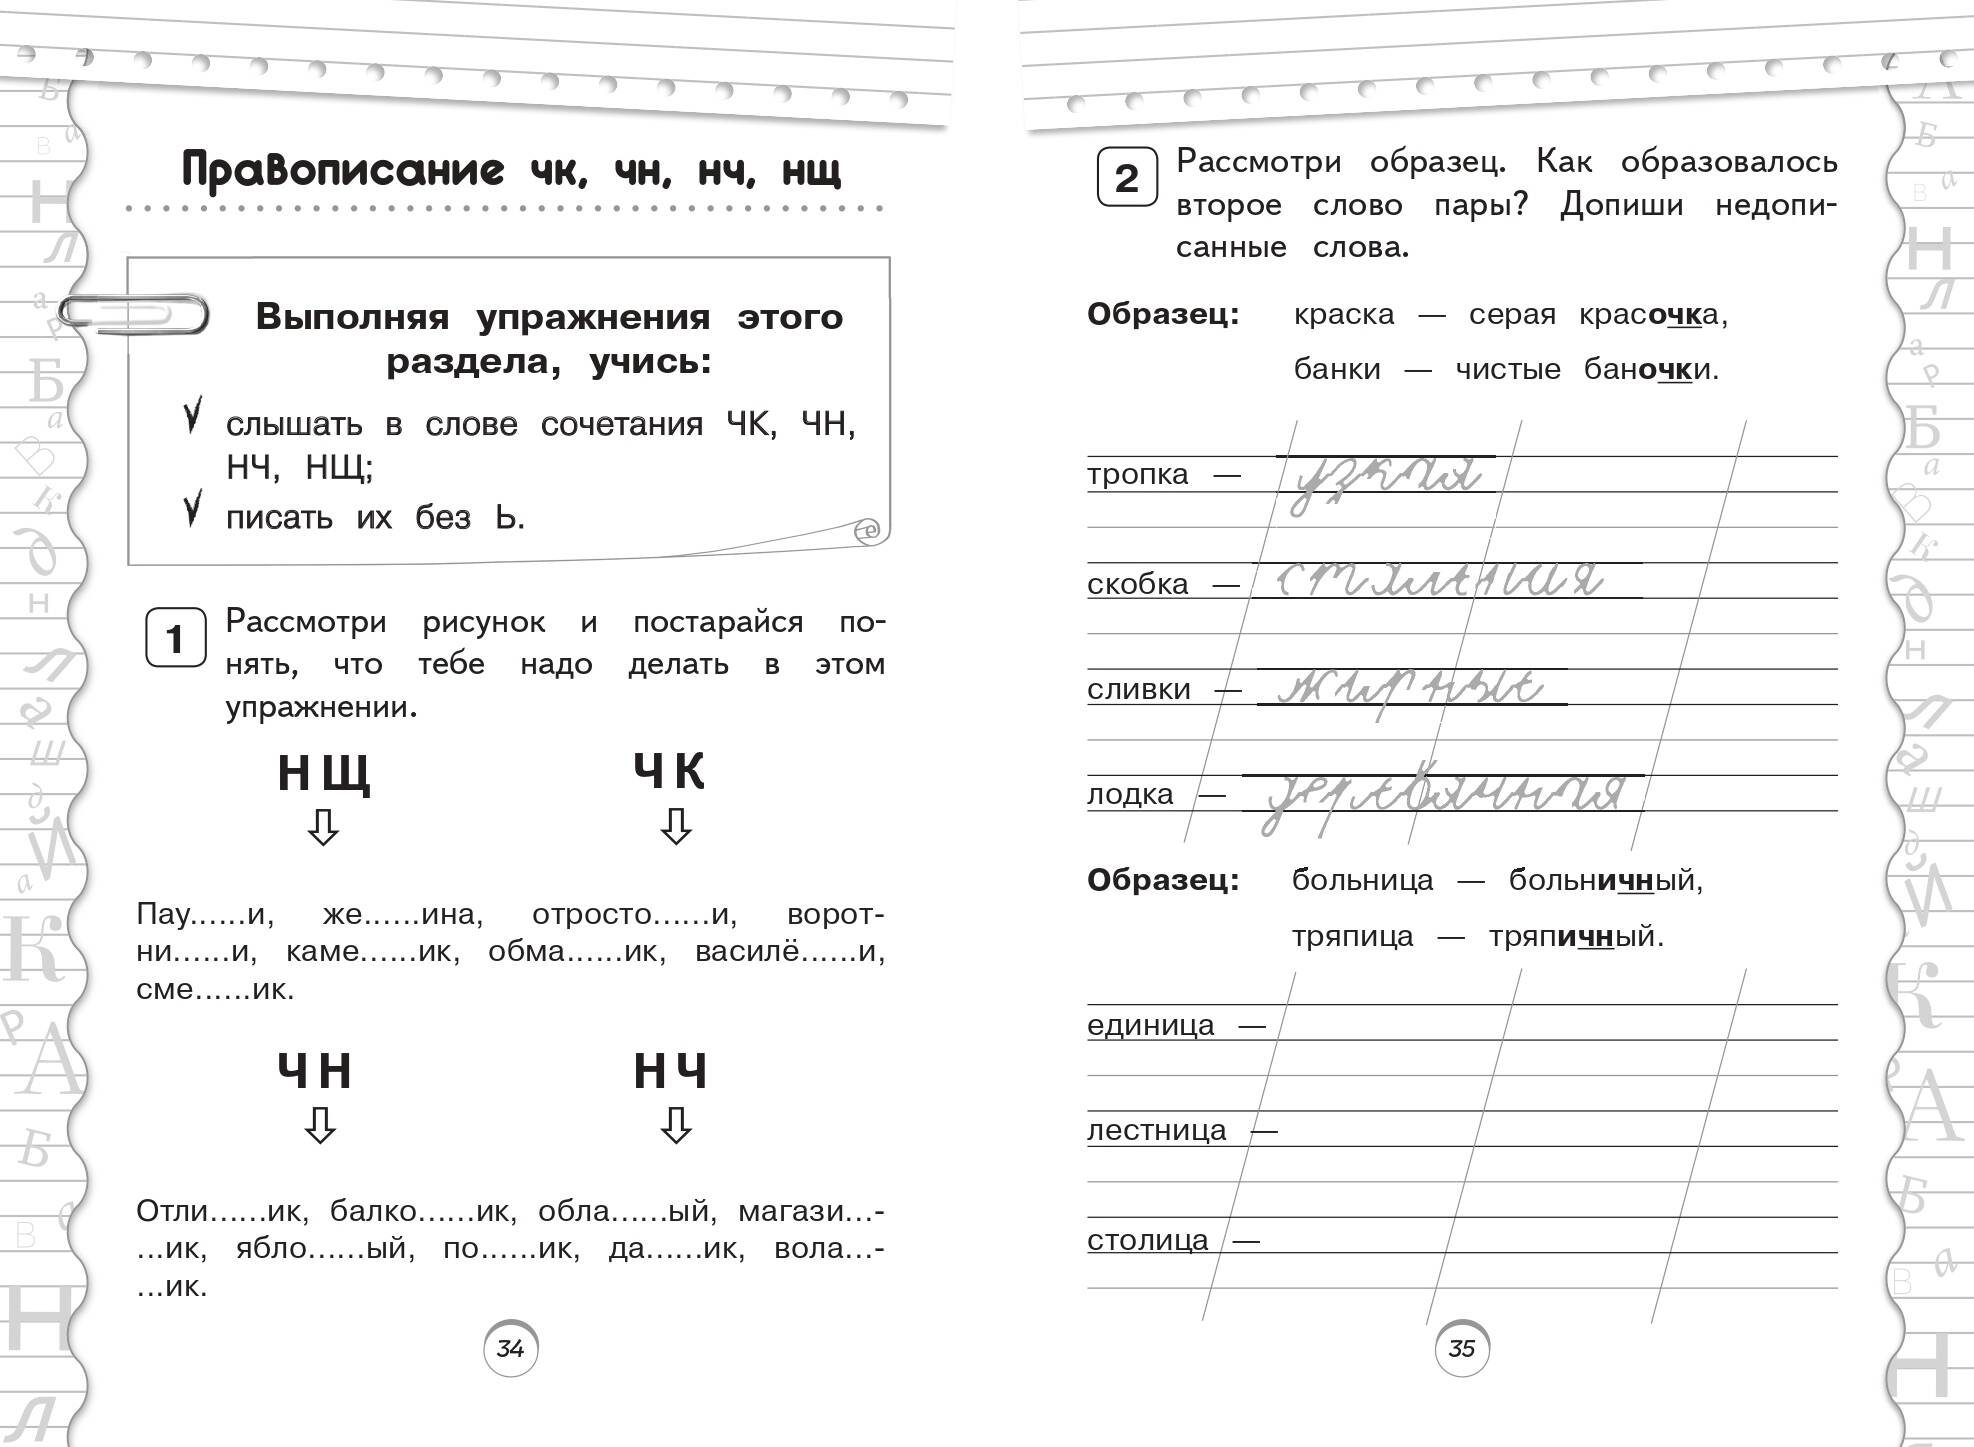 Правописание чк, чн, нч, нщ
Выполняя упражнения этого
раздела, учись:
слышать в слове сочетания ЧК, ЧН,
НЧ, НЩ;
писать их без Ь.
1
Рассмотри рисунок и постарайся по-
нять, что тебе надо делать в этом
упражнении.
НЩ ЧК
Пау......и, же......ина, отросто......и, ворот-
ни......и, каме......ик, обма......ик, василё......и,
сме......ик.
ЧН НЧ
Отли......ик, балко......ик, обла......ый, магази...-
...ик, ябло......ый, по......ик, да......ик, вола...-
...ик.
34
2
Рассмотри образец. Как образовалось
второе слово пары? Допиши недопи-
санные слова.
Образец: краска — серая красочка,
банки — чистые баночки.
тропка — узкая
скобка — стальная
сливки — жирные
лодка — деревянная
Образец: больница — больничный,
тряпица — тряпичный.
единица —
лестница —
столица —
35